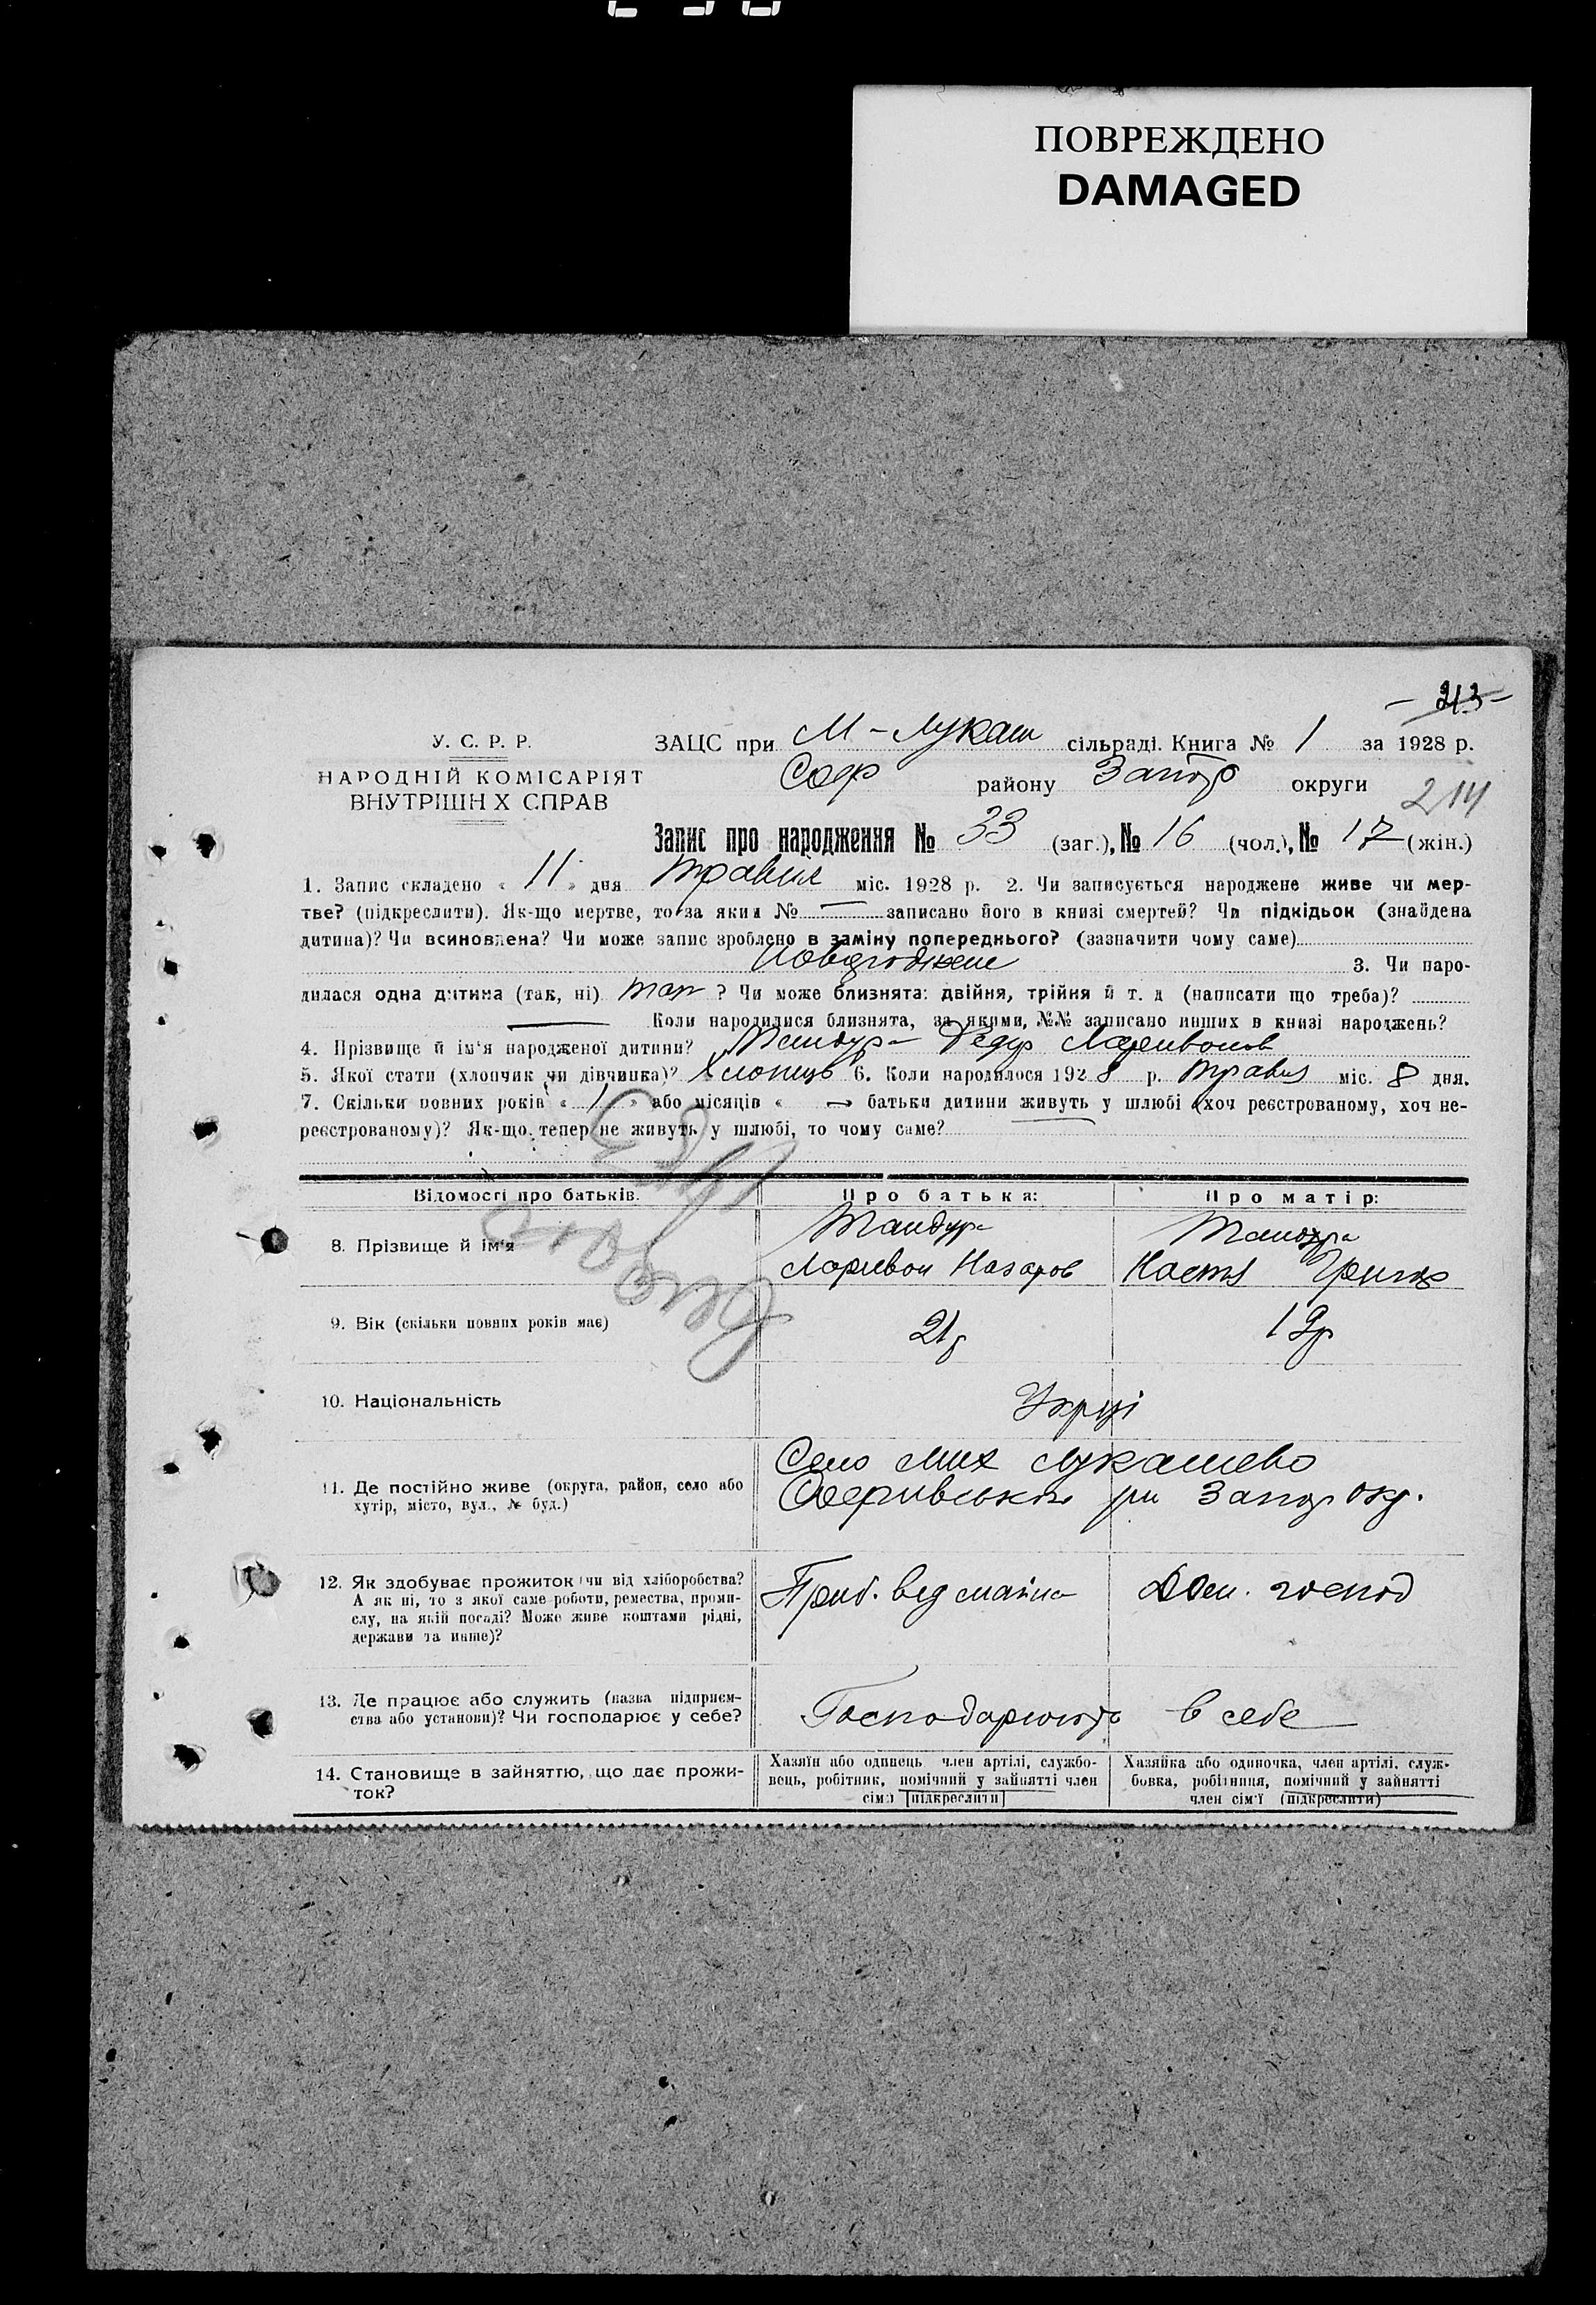 ПОВРЕЖДЕНО
DAMAGED
213
У. С. Р. Р.
НАРОДНІЙ КОМІСАРІЯТ
ВНУТРІШН Х СПРАВ
ЗАЦС при М-Лукаш сільраді. Книга № 1 за 1928 р.
Соф району Запор округи
214
Запис про народження № 33 (заг.), № 16 (чол.), № 17 (жін.)
1. Запис складено « 11 » дня Травня міс. 1928 р. 2. Чи записується народжене живе чи мер-
тве? (підкреслити). Як-що мертве, то за яким № — записано його в книзі смертей? Чи підкідьок (знайдена
дитина)? Чи всиновлена? Чи може запис зроблено в заміну попереднього? (зазначити чому саме)
Новороджене 3. Чи наро-
дилася одна дитина (так, ні) так ? Чи може близнята: двійня, трійня й т. д (написати що треба)?
— Коли народилися близнята, за якими, №№ записано инших в книзі народжень?
4. Прізвище й ім'я народженої дитини? Тандура Федір Ларивонов
5. Якої стати (хлопчик чи дівчинка)? Хлопець 6. Коли народилося 1928 р. Травня міс. 8 дня.
7. Скільки повних років « 1 » або місяців « — батьки дитини живуть у шлюбі (хоч реєстрованому, хоч не-
реєстрованому)? Як-що тепер не живуть у шлюбі, то чому саме?
Відомості про батьків.
Про батька:
Про матір:
8. Прізвище й ім'я
Тандура
Ларивон Назаров
Тандура
Настя Григор
9. Вік (скільки повних років має)
21р
19р
10. Національність
Укрці
11. Де постійно живе (округа, район, село або
хутір, місто, вул., № буд.)
Село Мих Лукашево
Софиївськ рн Запор окр.
12. Як здобуває прожиток (чи від хліборобства?
А як ні, то з якої саме роботи, ремества, проми-
слу, на якій посаді? Може живе коштами рідні,
держави та инше)?
Приб. від майна
Дом. господ
13. Де працює або служить (назва підприєм-
ства або установи)? Чи господарює у себе?
Господарюють в себе
14. Становище в зайняттю, що дає прожи-
ток?
Хазяїн або одинець член артілі, службо-
вець, робітник, помічний у зайнятті член
сім'ї [підкреслити]
Хазяйка або одиночка, член артілі, служ-
бовка, робітниця, помічний у зайнятті
член сім'ї (підкреслити)